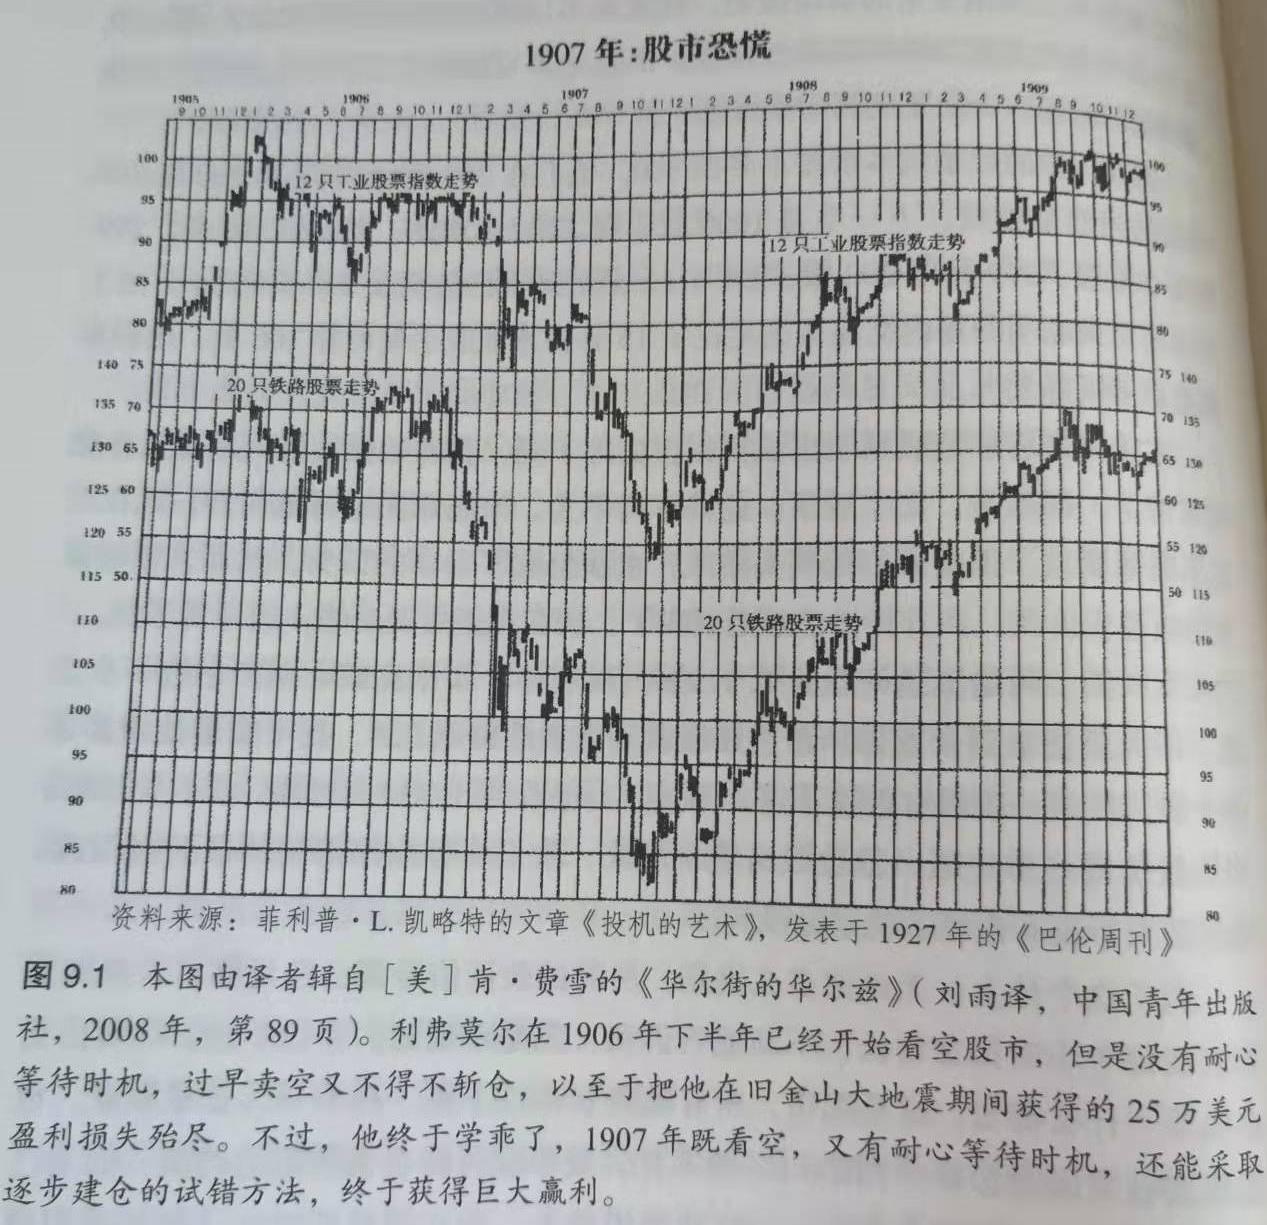 1907 年:股市恐慌
1905 1906 1907 1908 1909
9 10 11 12 1 2 3 4 5 6 7 8 9 10 11 12 1 2 3 4 5 6 7 8 9 10 11 12 1 2 3 4 5 6 7 8 9 10 11 12 1 2 3 4 5 6 7 8 9 10 11 12
100 100
12 只工业股票指数走势
95 95
90 90
12 只工业股票指数走势
85 85
80 80
140 75 75 140
20 只铁路股票走势
135 70 70 135
130 65 65 130
125 60 60 125
120 55 55 120
115 50 50 115
110 110
20 只铁路股票走势
105 105
100 100
95 95
90 90
85 85
80 80
资料来源：菲利普·L. 凯略特的文章《投机的艺术》，发表于 1927 年的《巴伦周刊》
图 9.1 本图由译者辑自［美］肯·费雪的《华尔街的华尔兹》（刘雨译，中国青年出版
社，2008 年，第 89 页）。利弗莫尔在 1906 年下半年已经开始看空股市，但是没有耐心
等待时机，过早卖空又不得不斩仓，以至于把他在旧金山大地震期间获得的 25 万美元
盈利损失殆尽。不过，他终于学乖了，1907 年既看空，又有耐心等待时机，还能采取
逐步建仓的试错方法，终于获得巨大赢利。